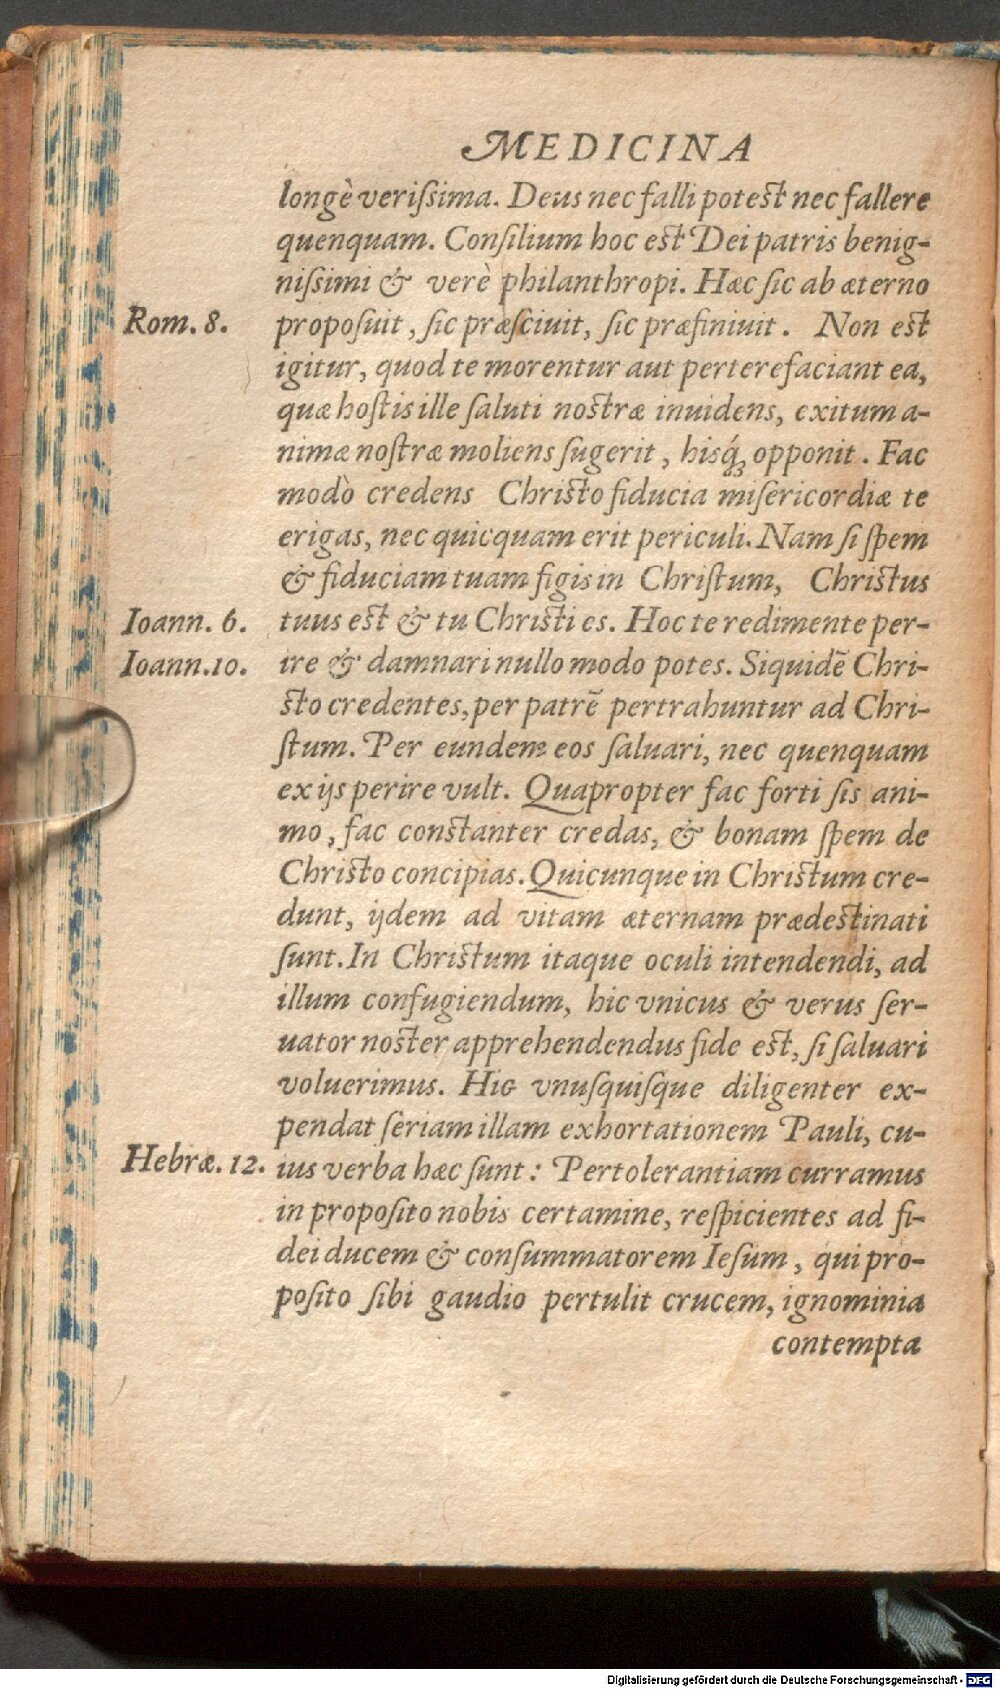 MEDICINA
longè verißima. Deus nec falli potest nec fallere
quenquam. Conſilium hoc est Dei patris benig-
nißimi & verè philanthropi. Hæc ſic ab æterno
Rom. 8. propoſuit, ſic præſciuit, ſic præfiniuit. Non est
igitur, quod te morentur aut perterefaciant ea,
quæ hoſtis ille ſaluti nostræ inuidens, exitum a-
nimæ noſtræ moliens ſugerit, hisq́ꝫ opponit. Fac
modò credens Christo fiducia miſericordiæ te
erigas, nec quicquam erit periculi. Nam ſi ſpem
& fiduciam tuam figis in Chriſtum, Christus
Ioann. 6. tuus est & tu Christi es. Hoc te redimente per-
Ioann. 10. ire & damnari nullo modo potes. Siquidẽ Chri-
sto credentes, per patrẽ pertrahuntur ad Chri-
ſtum. Per eundem eos ſaluari, nec quenquam
ex ijs perire vult. Quapropter fac forti ſis ani-
mo, fac constanter credas, & bonam ſpem de
Christo concipias. Quicunque in Christum cre-
dunt, ijdem ad vitam æternam prædestinati
ſunt. In Christum itaque oculi intendendi, ad
illum confugiendum, hic vnicus & verus ſer-
uator noster apprehendendus fide est, ſi ſaluari
voluerimus. Hic vnuſquiſque diligenter ex-
pendat ſeriam illam exhortationem Pauli, cu-
Hebræ. 12. ius verba hæc ſunt: Per tolerantiam curramus
in propoſito nobis certamine, reſpicientes ad fi-
dei ducem & conſummatorem Ieſum, qui pro-
poſito ſibi gaudio pertulit crucem, ignominia
contempta
Digitalisierung gefördert durch die Deutsche Forschungsgemeinschaft - DFG